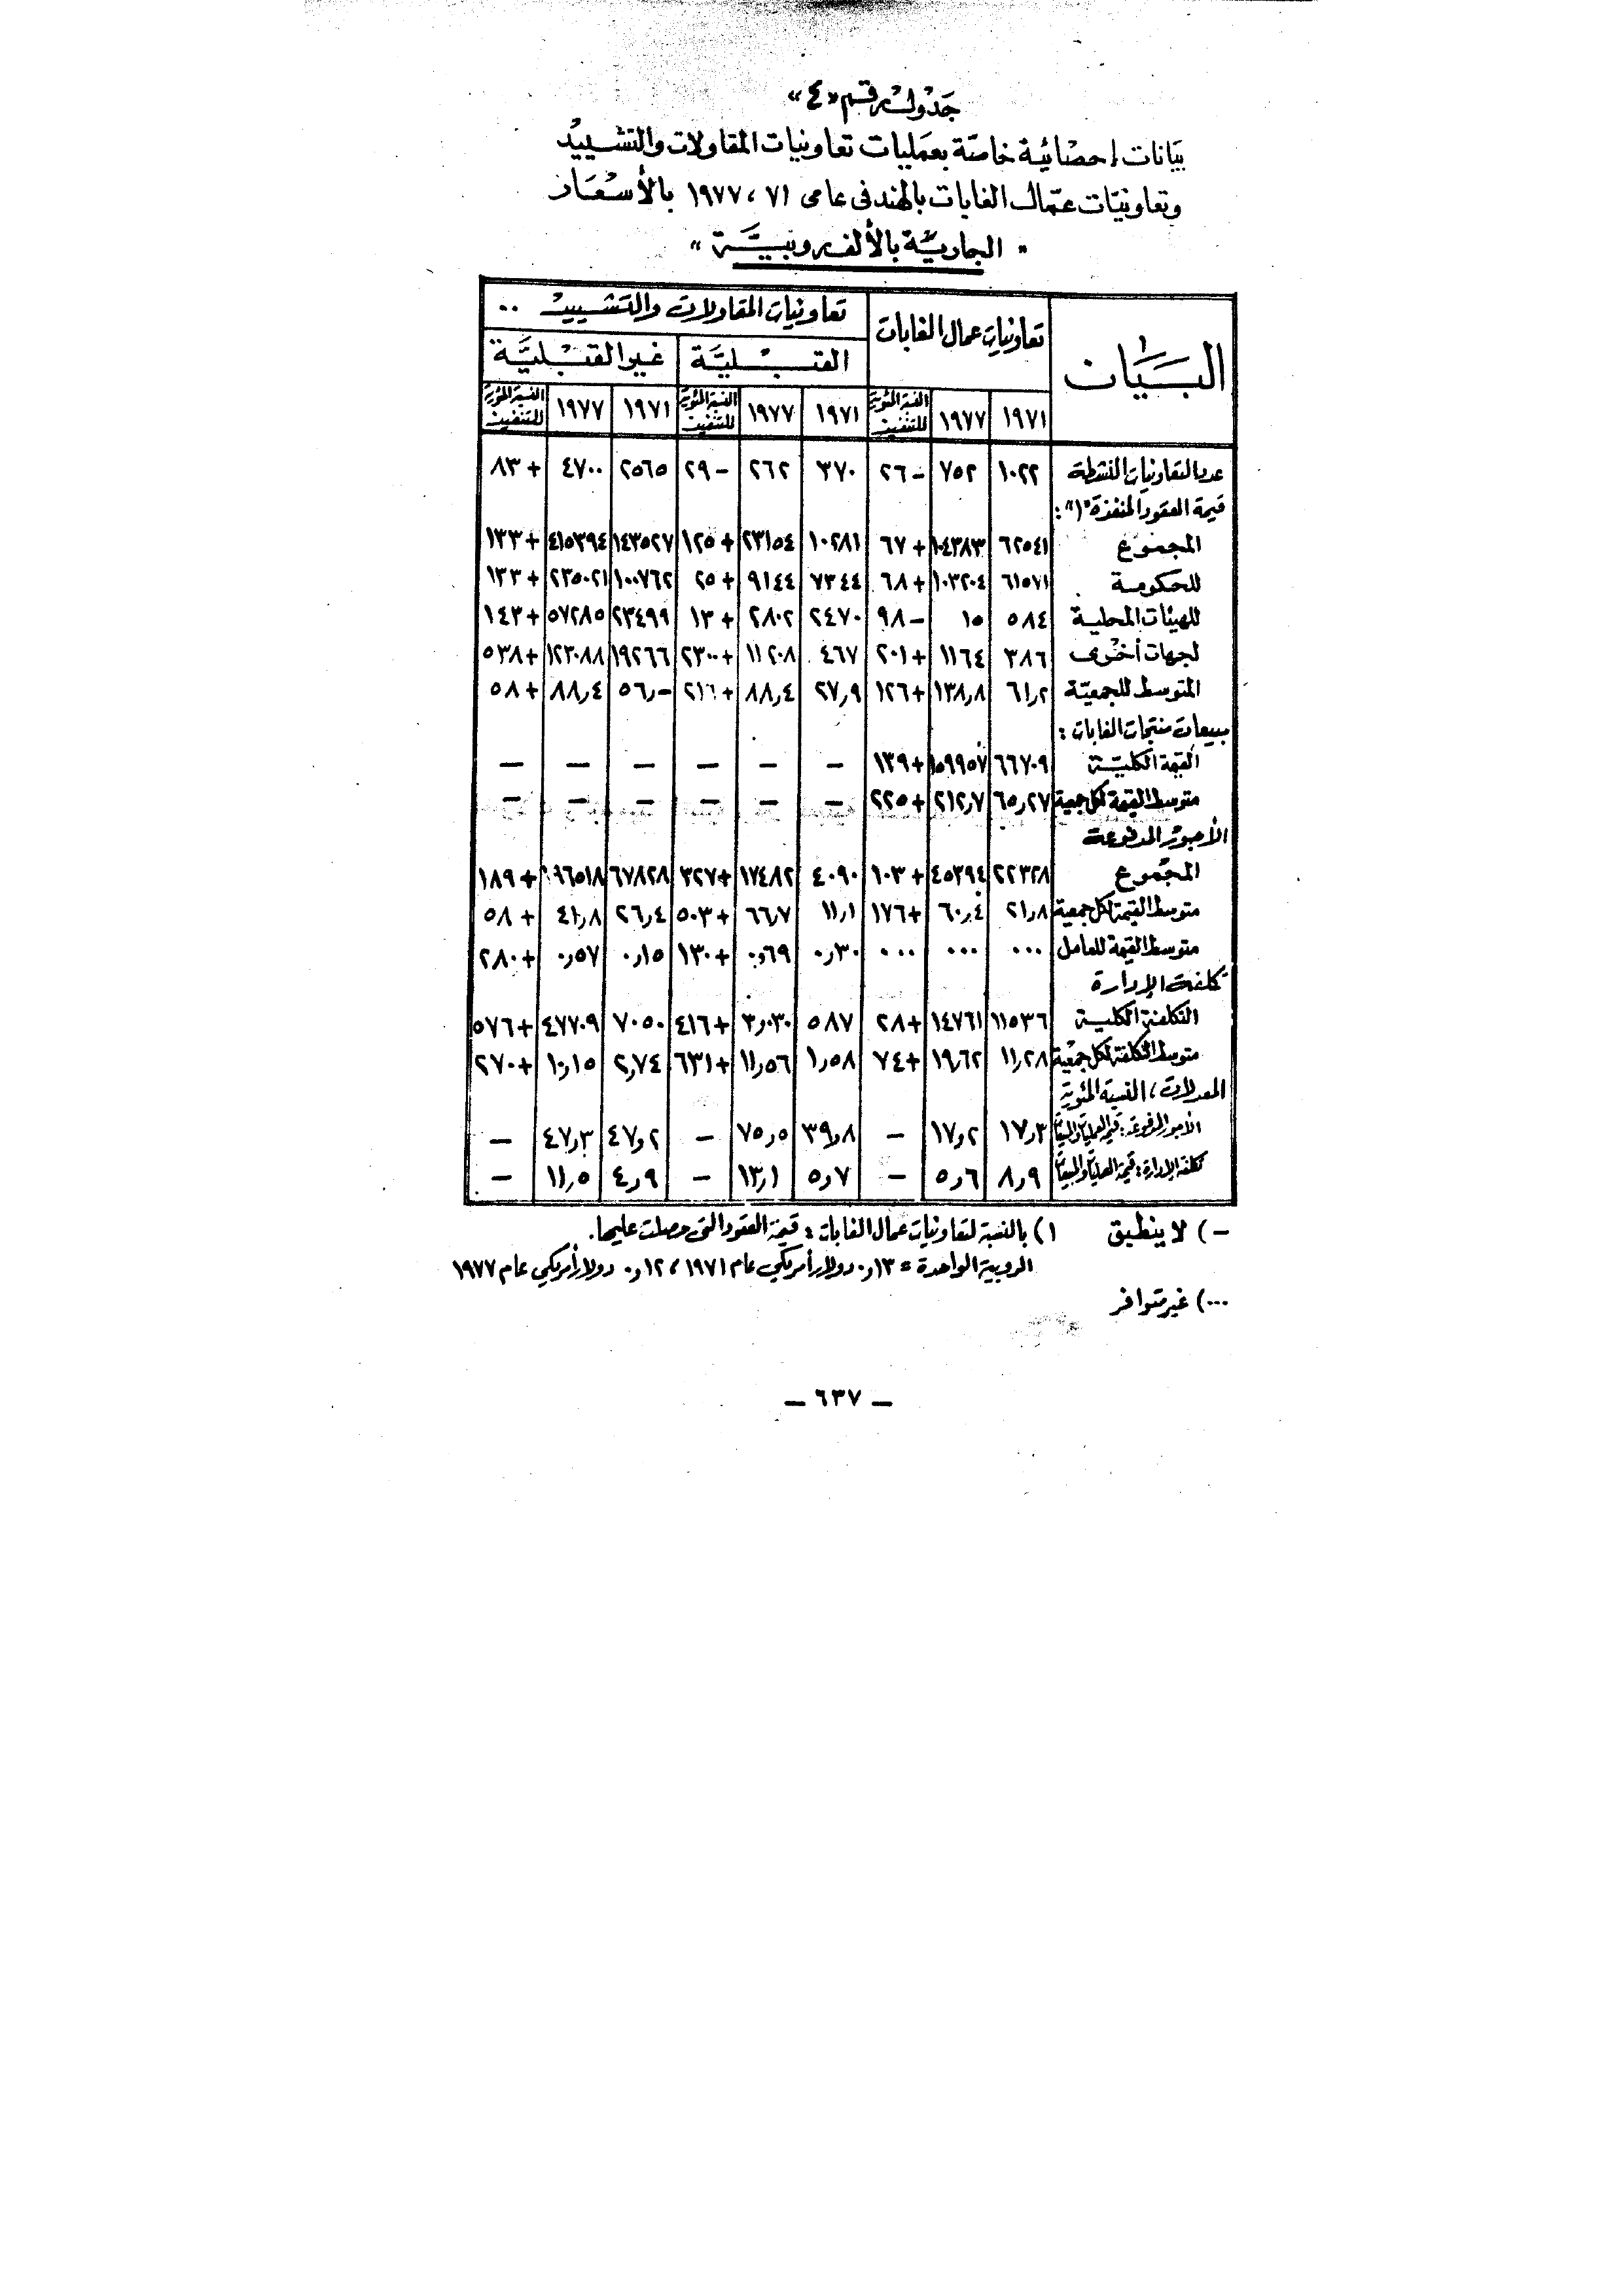 جدول رقم «٤»
بيانات إحصائية خاصة بعمليات تعاونيات المقاولات والتشييد
وتعاونيات عمال الغابات بالهند فى عامى ٧١ ، ١٩٧٧ بالأسعار
" الجارية بالألف روبية "
البيان تعاونيات عمال الغابات تعاونيات المقاولات والتشييد ..
القبلية غير القبلية
١٩٧١ ١٩٧٧ النسبة المئوية للتنفيذ ١٩٧١ ١٩٧٧ النسبة المئوية للتنفيذ ١٩٧١ ١٩٧٧ النسبة المئوية للتنفيذ
عدد التعاونيات النشطة ١٠٢٢ ٧٥٢ -٢٦ ٣٧٠ ٢٦٢ -٢٩ ٢٥٦٥ ٤٧٠٠ +٨٣
قيمة العقود المنفذة "١" :
المجموع ٦٢٥٤١ ١٠٤٣٨٣ +٦٧ ١٠٢٨١ ٢٣١٥٤ +١٢٥ ١٤٣٥٢٧ ٤١٥٣٩٤ +١٣٣
للحكومة ٦١٥٧١ ١٠٣٢٠٤ +٦٨ ٧٣٤٤ ٩١٤٤ +٢٥ ١٠٠٧٦٢ ٢٣٥٠٢١ +١٣٣
للهيئات المحلية ٥٨٤ ١٥ -٩٨ ٢٤٧٠ ٢٨٠٢ +١٣ ٢٣٤٩٩ ٥٧٢٨٥ +١٤٣
لجهات أخرى ٣٨٦ ١١٦٤ +٢٠١ ٤٦٧ ١١٢٠٨ +٢٣٠٠ ١٩٢٦٦ ١٢٣٠٨٨ +٥٣٨
المتوسط للجمعية ٦١٫٢ ١٣٨٫٨ +١٢٦ ٢٧٫٩ ٨٨٫٤ +٢١٦ ٥٦٫- ٨٨٫٤ +٥٨
مبيعات منتجات الغابات :
القيمة الكلية ٦٦٧٠٩ ١٥٩٩٥٧ +١٣٩ — — — — — —
متوسط القيمة لكل جمعية ٦٥٫٢٧ ٢١٢٫٧ +٢٢٥ — — — — — —
الأجور المدفوعة
المجموع ٢٢٣٢٨ ٤٥٣٩٤ +١٠٣ ٤٠٩٠ ١٧٤٨٢ +٣٢٧ ٦٧٨٢٨ ١٩٦٥١٨ +١٨٩
متوسط القيمة لكل جمعية ٢١٫٨ ٦٠٫٤ +١٧٦ ١١٫١ ٦٦٫٧ +٥٠٣ ٢٦٫٤ ٤١٫٨ +٥٨
متوسط القيمة للعامل ... ... ... ٠٫٣٠ ٠٫٦٩ +١٣٠ ٠٫١٥ ٠٫٥٧ +٢٨٠
تكلفة الإدارة
التكلفة الكلية ١١٥٣٦ ١٤٧٦١ +٢٨ ٥٨٧ ٣٫٠٣٠ +٤١٦ ٧٠٥٠ ٤٧٧٠٩ +٥٧٦
متوسط التكلفة لكل جمعية ١١٫٢٨ ١٩٫٦٢ +٧٤ ١٫٥٨ ١١٫٥٦ +٦٣١ ٢٫٧٤ ١٠٫١٥ +٢٧٠
المعدلات ، النسبة المئوية
الأجور المدفوعة : قيمة العمليات والمبيعات ١٧٫٣ ١٧٫٢ — ٣٩٫٨ ٧٥٫٥ — ٤٧٫٢ ٤٧٫٣ —
تكلفة الإدارة : قيمة العمليات والمبيعات ٨٫٩ ٥٫٦ — ٥٫٧ ١٣٫١ — ٤٫٩ ١١٫٥ —
-) لا ينطبق ١) بالنسبة لتعاونيات عمال الغابات : قيمة العقود التى حصلت عليها.
الروبية الواحدة = ٠٫١٣ دولار أمريكي عام ١٩٧١ ، ٠٫١٢ دولار أمريكي عام ١٩٧٧
...) غير متوافر
— ٦٣٧ —